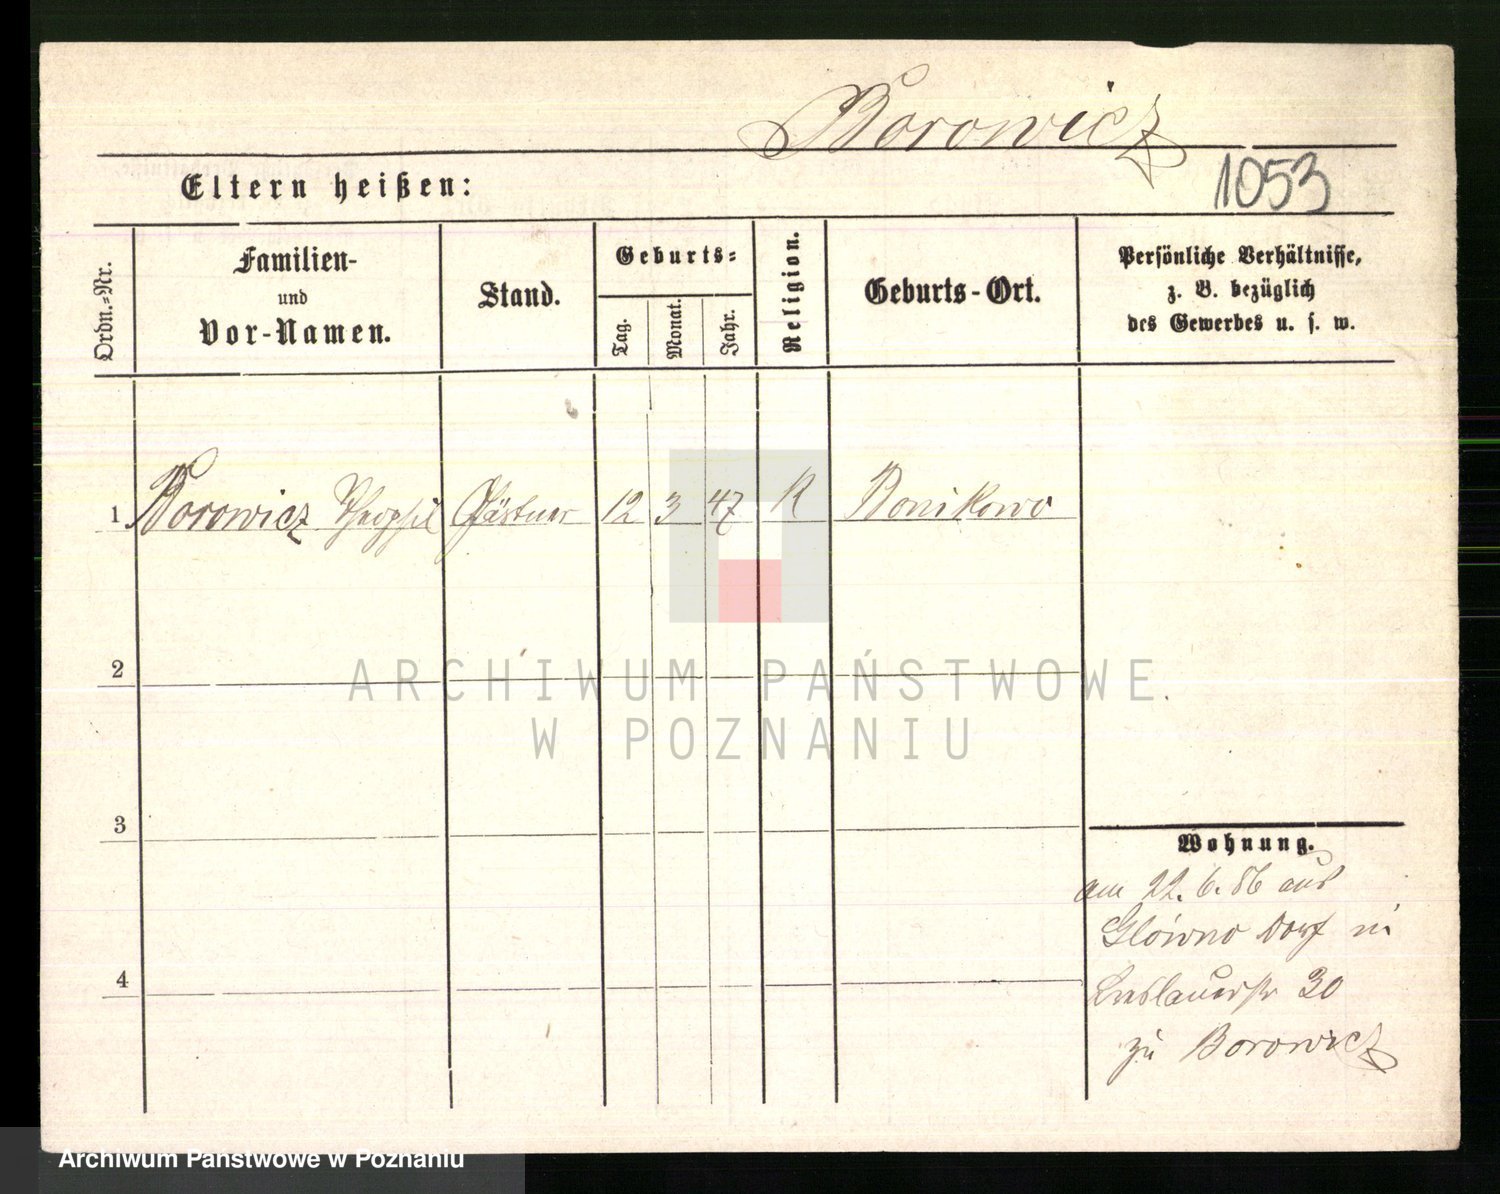 Borowicz
1053
Eltern heißen:
Ordn.=Nr.
Familien-
und
Vor-Namen.
Stand.
Geburts=
Tag.
Monat.
Jahr.
Religion.
Geburts-Ort.
Persönliche Verhältnisse,
z. B. bezüglich
des Gewerbes u. s. w.
1 Borowicz Theophil Gärtner 12 3 47 K Bonikowo
2
3
4
Wohnung.
am 22. 6. 86 aus
Glówno Dorf in
Breslauerstr 30
zu Borowicz
ARCHIWUM PAŃSTWOWE
W POZNANIU
Archiwum Państwowe w Poznaniu